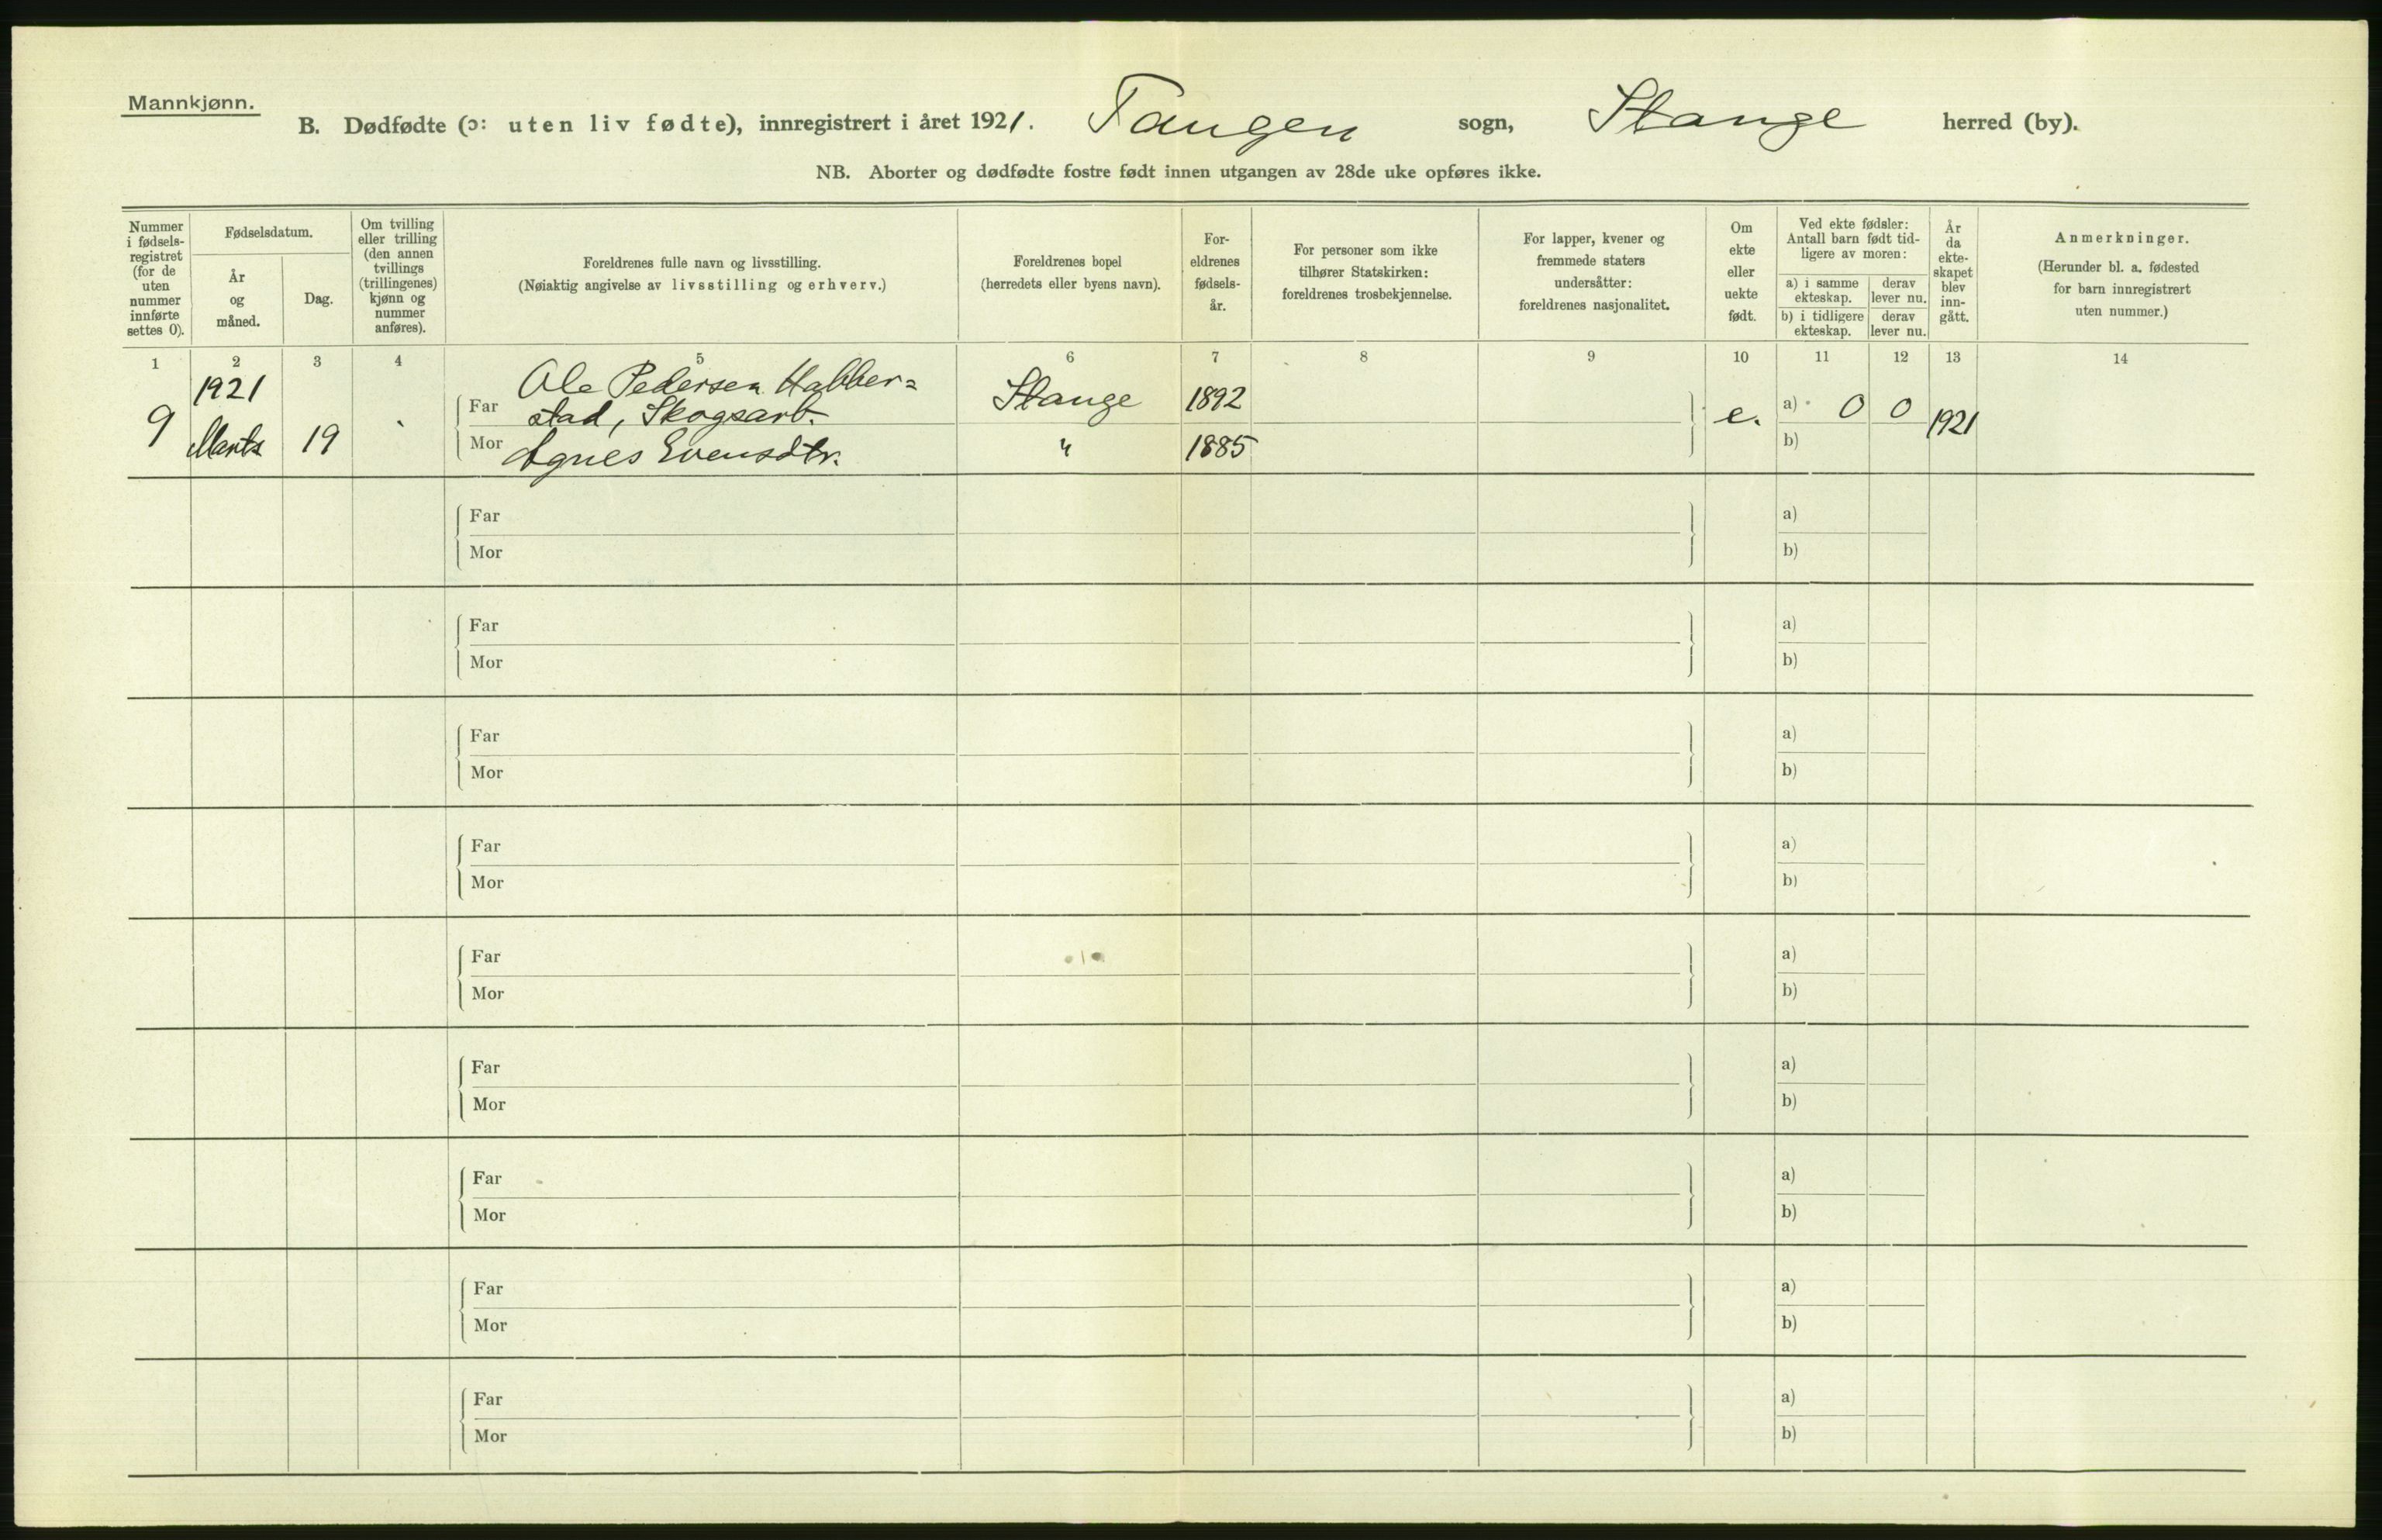 Mannkjønn.
B. Dødfødte (ɔ: uten liv fødte), innregistrert i året 1921. Tangen sogn, Stange herred (by).
NB. Aborter og dødfødte fostre født innen utgangen av 28de uke opføres ikke.
Nummer
i fødsels-
registret
(for de
uten
nummer
innførte
settes 0).
Fødselsdatum.
År
og
måned.
Dag.
Om tvilling
eller trilling
(den annen
tvillings
(trillingenes)
kjønn og
nummer
anføres).
Foreldrenes fulle navn og livsstilling.
(Nøiaktig angivelse av livsstilling og erhverv.)
Foreldrenes bopel
(herredets eller byens navn).
For-
eldrenes
fødsels-
år.
For personer som ikke
tilhører Statskirken:
foreldrenes trosbekjennelse.
For lapper, kvener og
fremmede staters
undersåtter:
foreldrenes nasjonalitet.
Om
ekte
eller
uekte
født.
Ved ekte fødsler:
Antall barn født tid-
ligere av moren:
a) i samme
ekteskap.
derav
lever nu.
b) i tidligere
ekteskap.
derav
lever nu.
År
da
ekte-
skapet
blev
inn-
gått.
Anmerkninger.
(Herunder bl. a. fødested
for barn innregistrert
uten nummer.)
1 2 3 4 5 6 7 8 9 10 11 12 13 14
9
1921
Marts
19
Far Ole Pedersen Habber=
stad, Skogsarb.
Mor Agnes Evensdtr.
Stange
"
1892
1885
e.
a) 0 0
b)
1921
Far a)
Mor b)
Far a)
Mor b)
Far a)
Mor b)
Far a)
Mor b)
Far a)
Mor b)
Far a)
Mor b)
Far a)
Mor b)
Far a)
Mor b)
Far a)
Mor b)